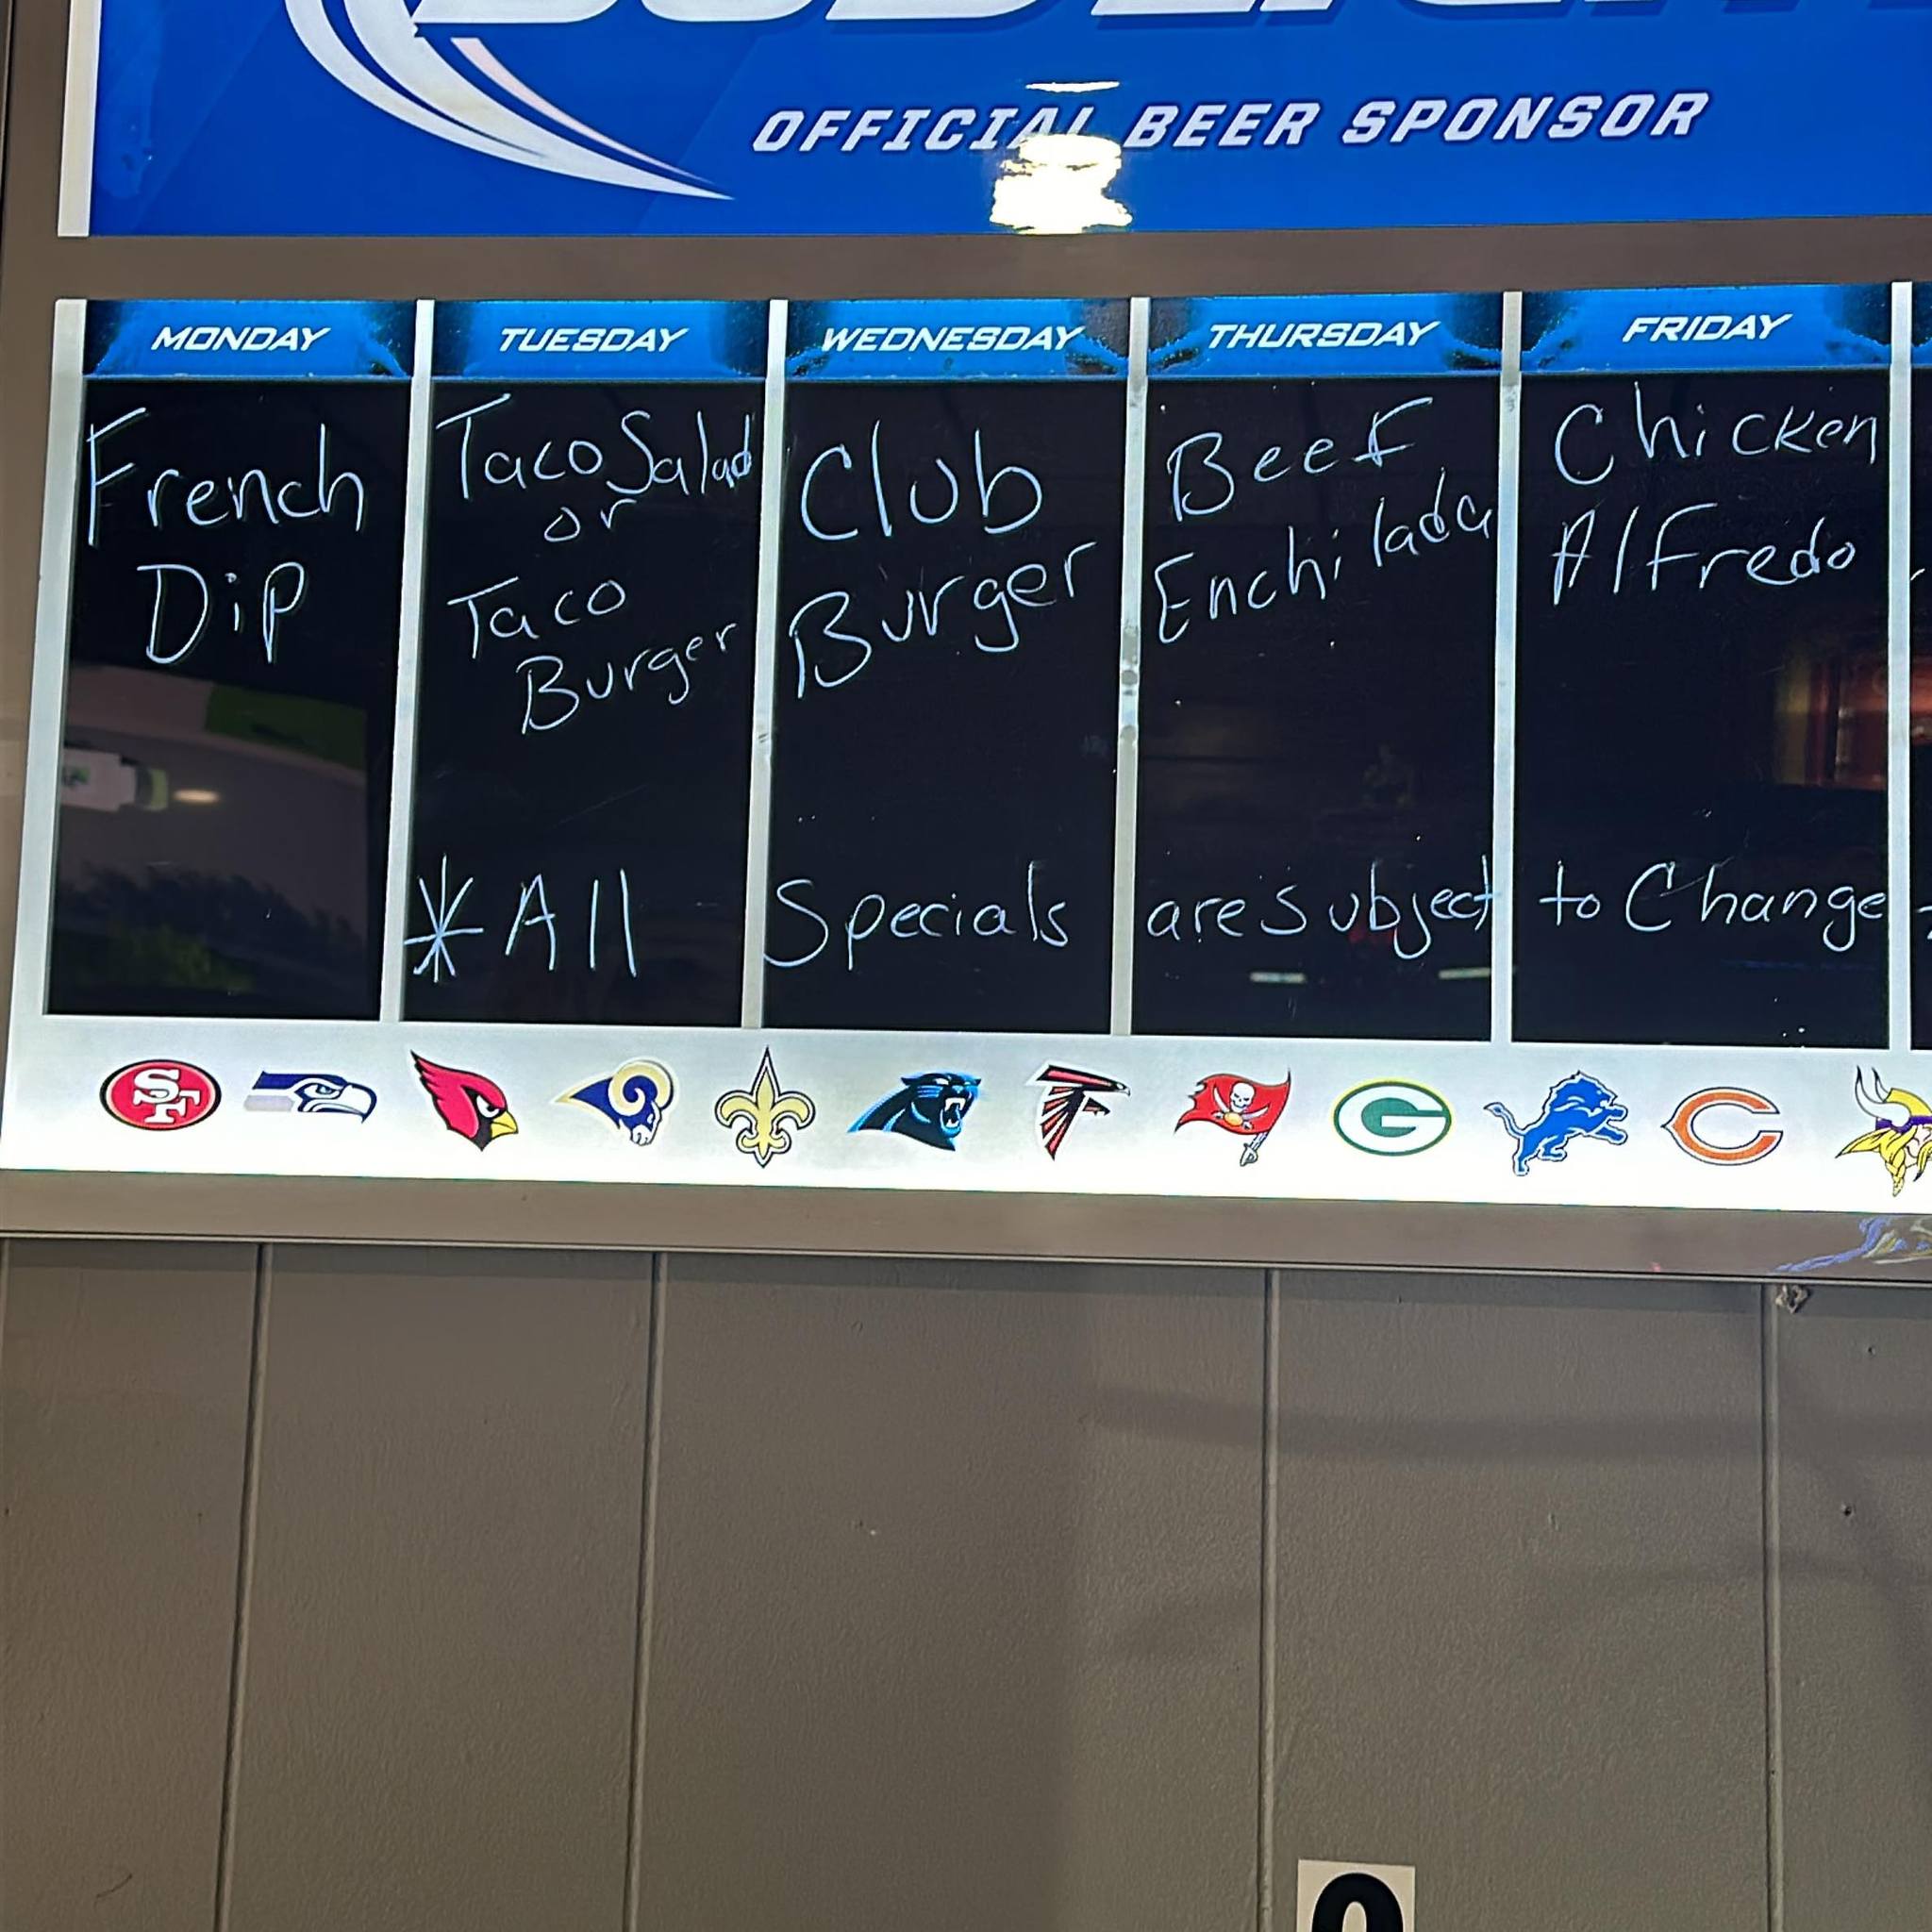 OFFICIAL BEER SPONSOR
MONDAY
French
Dip
TUESDAY
Taco Salad
or
Taco
Burger
WEDNESDAY
Club
Burger
THURSDAY
Beef
Enchilada
FRIDAY
Chicken
Alfredo
*All Specials are subject to Change
SF
G
C